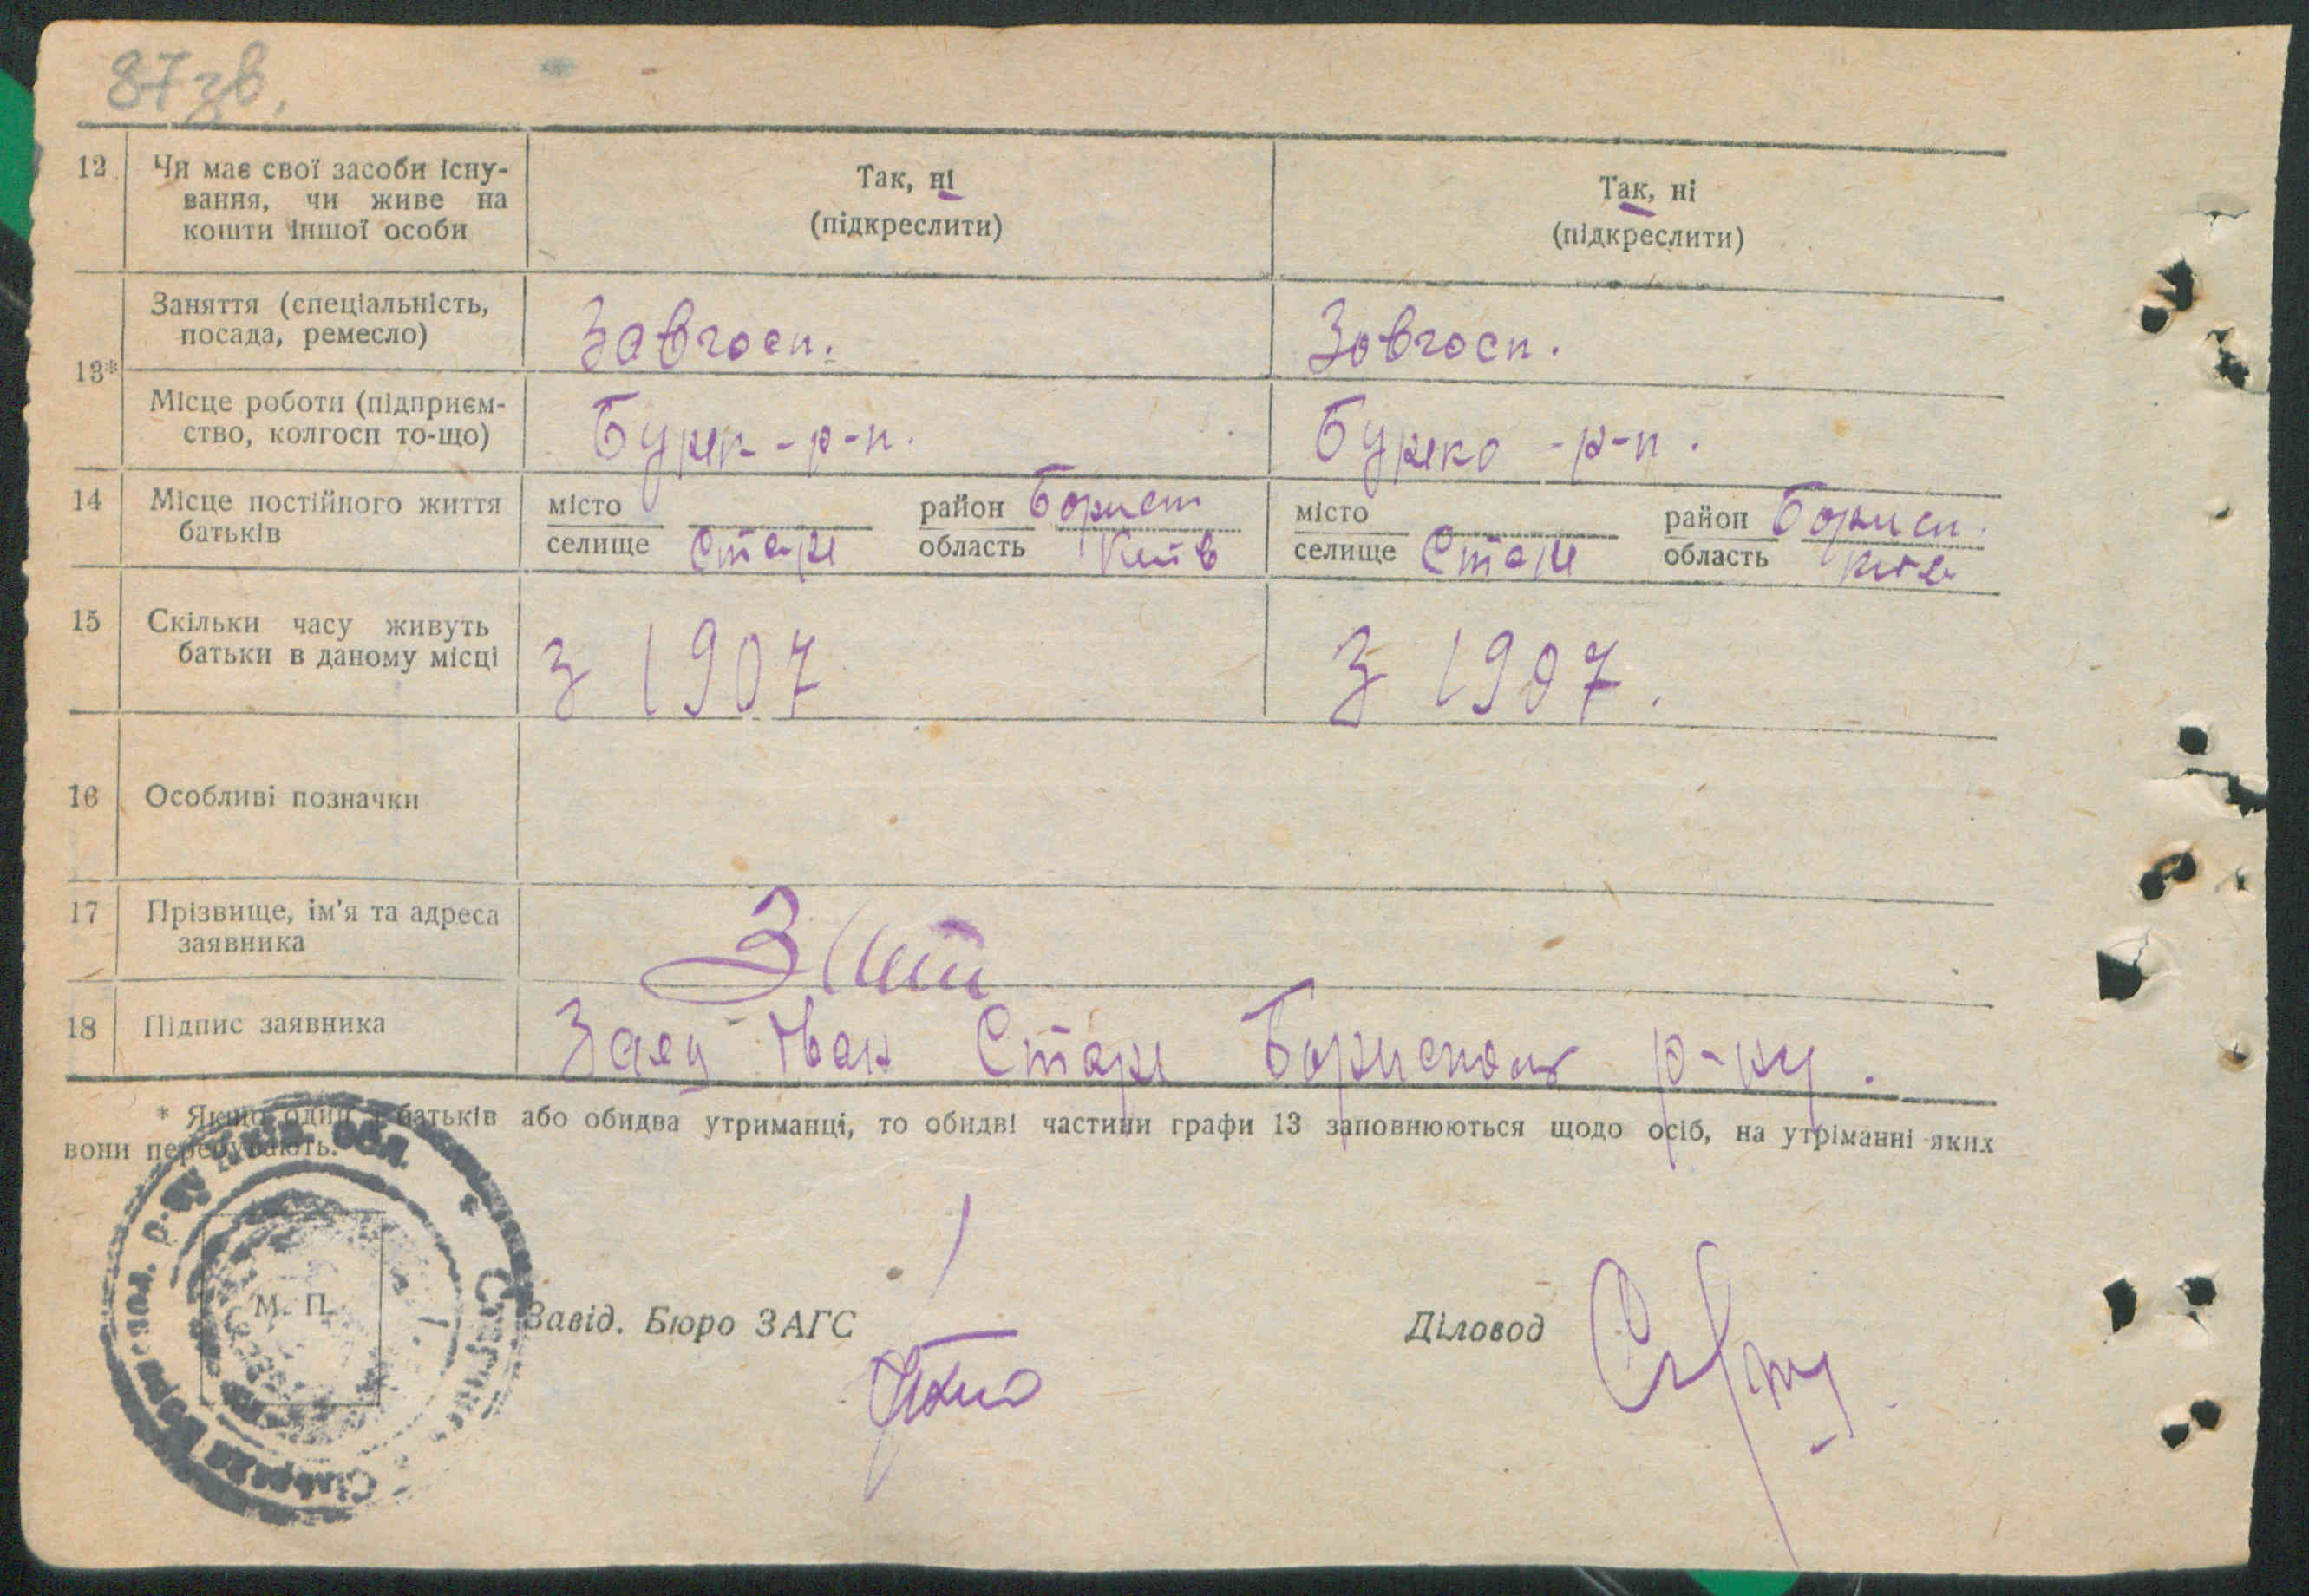 87зв.
12 Чи має свої засоби існу-
вання, чи живе на
кошти іншої особи
Так, ні
(підкреслити)
Так, ні
(підкреслити)
13*
Заняття (спеціальність,
посада, ремесло)
Завгосп.
Зовгосп.
Місце роботи (підприєм-
ство, колгосп то-що)
-р-п.
-р-п.
14 Місце постійного життя
батьків
місто
селище Старе
район Борисп
область Київ
місто
селище Старе
район Борисп.
область Київ
15 Скільки часу живуть
батьки в даному місці
з 1907
з 1907.
16 Особливі позначки
17 Прізвище, ім'я та адреса
заявника
18 Підпис заявника
Заяц Іван Старе Бориспольс р-ну.
* Якщо один з батьків або обидва утриманці, то обидві частини графи 13 заповнюються щодо осіб, на утріманні яких
вони перебувають.
М. П.
Завід. Бюро ЗАГС
Діловод